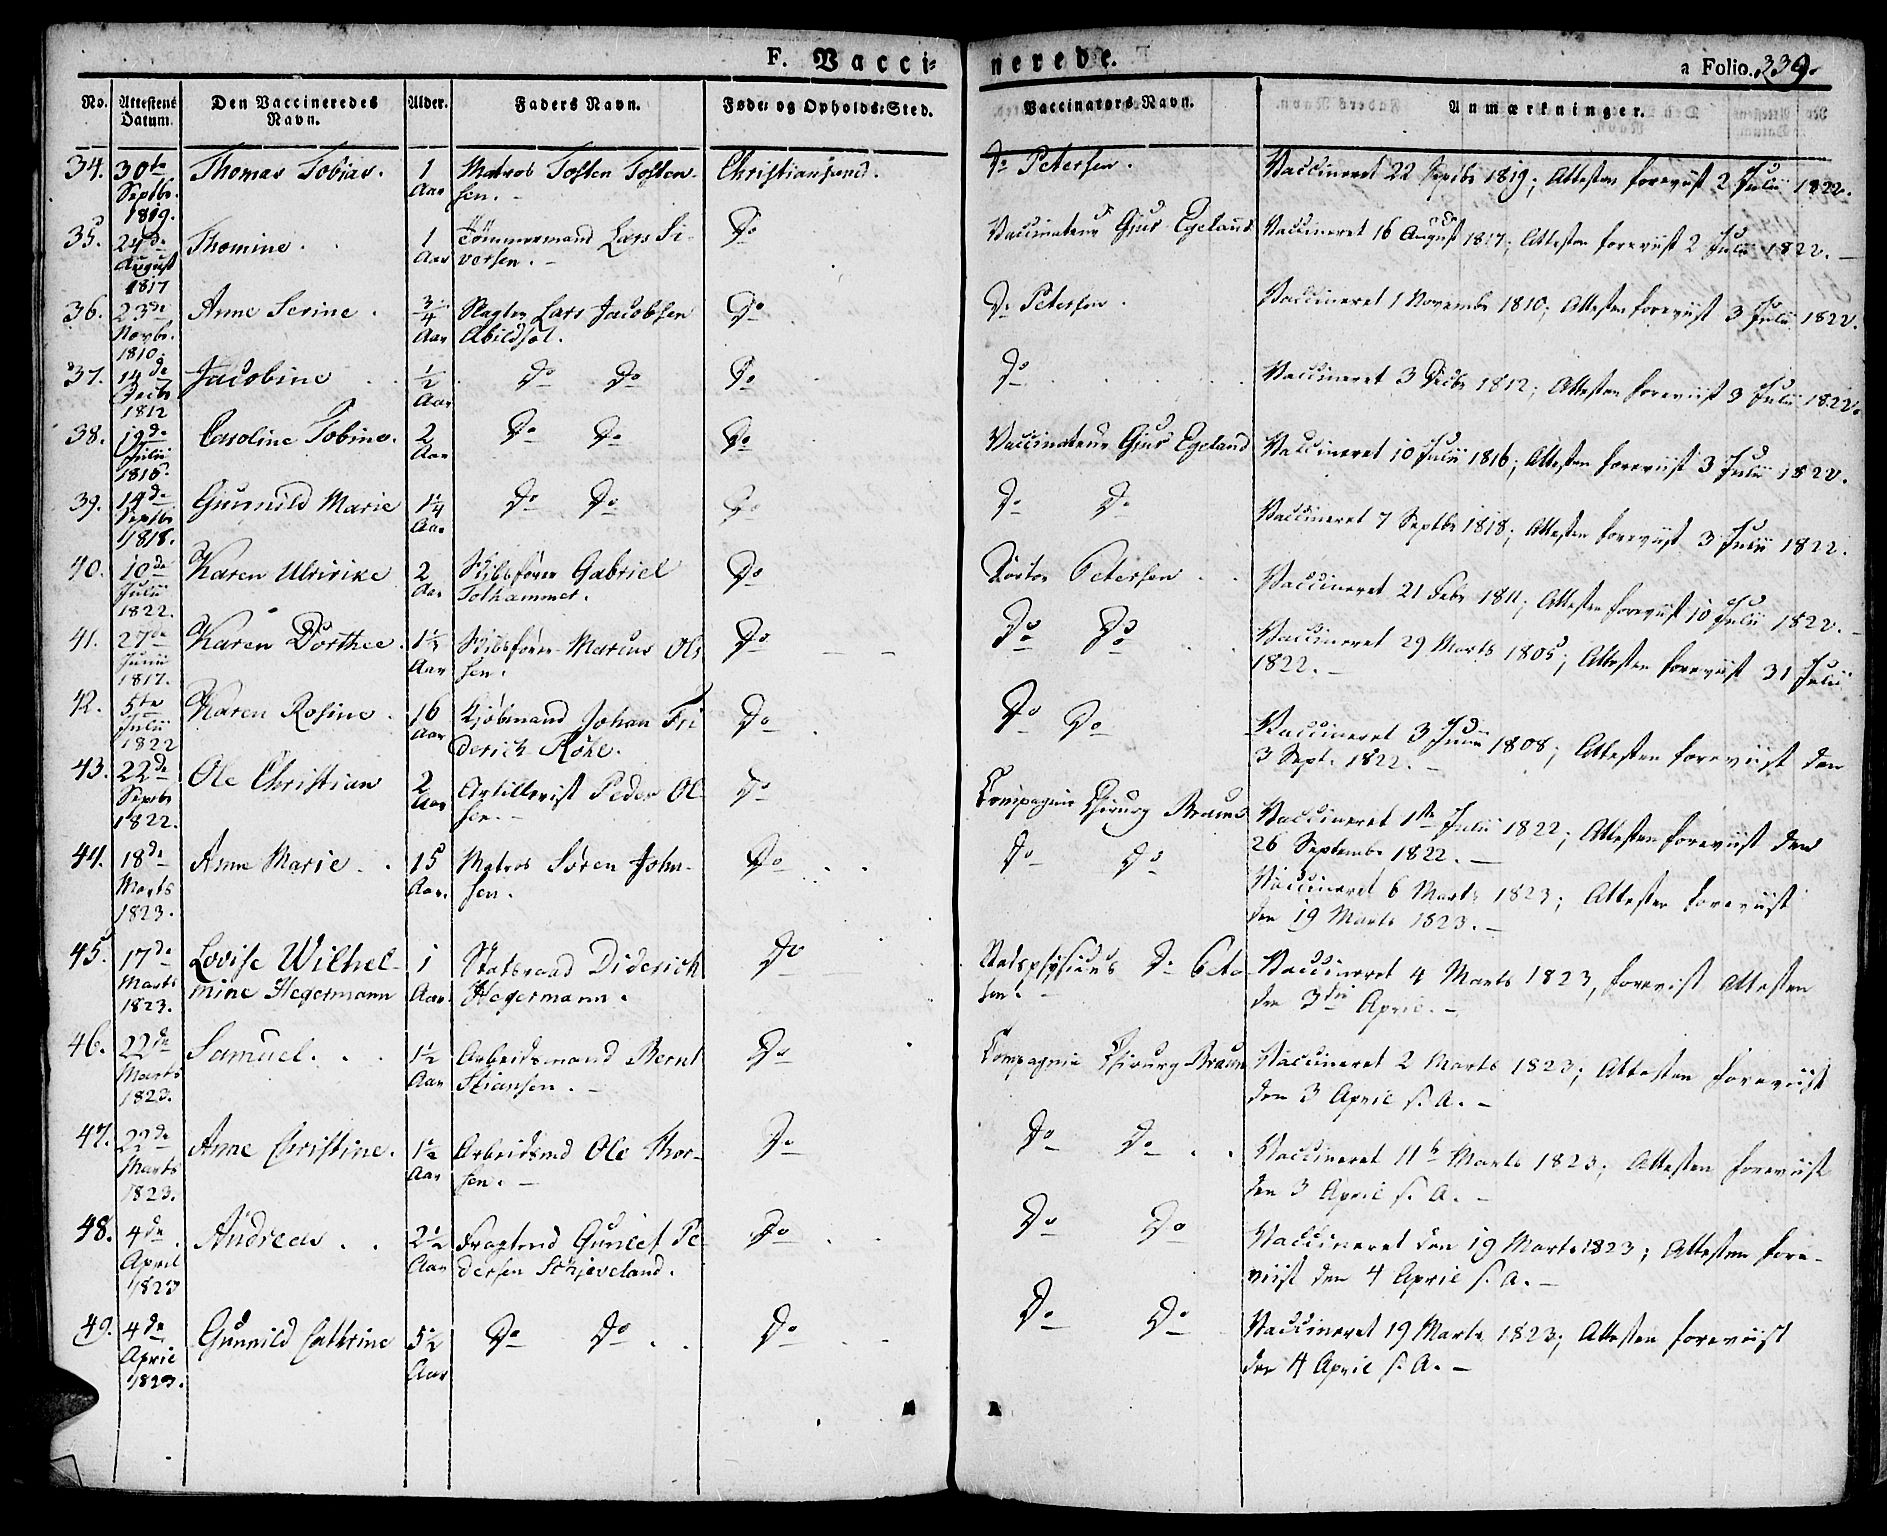 F. Vacci-
nerede.
a Folio. 339.
No. Attestens Datum. Den Vaccineredes Navn. Alder. Faders Navn. Føde- og Opholds-Sted. Vaccinators Navn. Anmærkninger.
34. 30te Septbr. 1819. Thomas Tobias. 1 Aar Matros Tosten Tostensen. - Christiansand. Dr Petersen. Vaccineret 22 Septbr 1819; Attesten foreviist 2 Julii 1822.
35. 24de August 1817 Thomine. 1 Aar Tømmermand Lars Sivorsen. - Do Vaccinateur Gjus Egeland Vaccineret 16 August 1817; Attesten foreviist 2 Julii 1822. -
36. 23de Novbr. 1810. Anne Serine. 3/4 Aar Slagter Lars Jacobsen Abildsøl. Do Dr Petersen. Vaccineret 1 Novembr 1810; Attesten foreviist 3 Julii 1822.
37. 14de Decbr 1812 Jacobine 1/2 Aar Do Do Do Do Vaccineret 3 Decbr 1812; Attesten foreviist 3 Julii 1822.
38. 19de Julii 1816. Caroline Tobine. 2 Aar Do Do Do Vaccinateur Gjus Egeland Vaccineret 10 Julii 1816; Attesten foreviist 3 Julii 1822.
39. 14de Septbr 1818. Gunnild Marie 1 1/4 Aar Do Do Do Do Do Vaccineret 7 Septbr 1818; Attesten foreviist 3 Julii 1822.
40. 10de Julii 1822. Karen Ulririke 2 Aar Skibsfører Gabriel Tolhammer. Do Doctor Petersen Vaccineret 21 Febr 1811; Attesten foreviist 10 Julii 1822. -
41. 27de Junii 1817. Karen Dorthee. 1 1/2 Aar Skibsfører Marcus Olsen. Do Do Do Vaccineret 29 Marts 1805; Attesten foreviist 31 Julii
1822. -
42. 5te Julii 1822 Karen Rosine. 16 Aar Kjøbmand Johan Friderich Röhl. Do Do Do Vaccineret 3 Junii 1808; Attesten foreviist den
3 Sept. 1822. -
43. 22de Septbr 1822. Ole Christian 2 Aar Artillerist Peder Olsen. - Do Compagnie Chirurg Braun Vaccineret 1ste Julii 1822; Attesten foreviist den
26 Septembr 1822. -
44. 18de Marts 1823. Anne Marie. 15 Aar. Matros Sören Johnsen. Do Do Do Vaccineret 6 Marts 1823; Attesten foreviist
den 19 Marts 1823. -
45. 17de Marts 1823. Lovise Wilhelmine Hegermann 1 Aar Statsraad Diderich Hegermann. Do Statsphysicus Dr Petersen. - Vaccineret 4 Marts 1823, foreviist Attesten
den 3die April. -
46. 22de Marts 1823. Samuel. 1 1/2 Aar Arbeidsmand Bernt Stiansen. - Do Compagnie Chirurg Braun Vaccineret 2 Marts 1823; Attesten foreviist
den 3 April s. A. -
47. 22de Marts 1823. Anne Christine. 1 1/2 Aar Arbeidsmd Ole Thorsen. - Do Do Do Vaccineret 11te Marts 1823; Attesten foreviist
den 3 April s. A. -
48. 4de April 1823 Andreas. 2 1/2 Aar Fragtmd Gunlef Pedersen Schjeveland. Do Do Do Vaccineret den 19 Marts 1823; Attesten fore-
viist den 4 April s. A. -
49. 4de April 1823. Gunnild Cathrine 5 1/2 Aar Do Do Do Do Do Vaccineret 19 Marts 1823; Attesten foreviist
den 4 April s. A. -